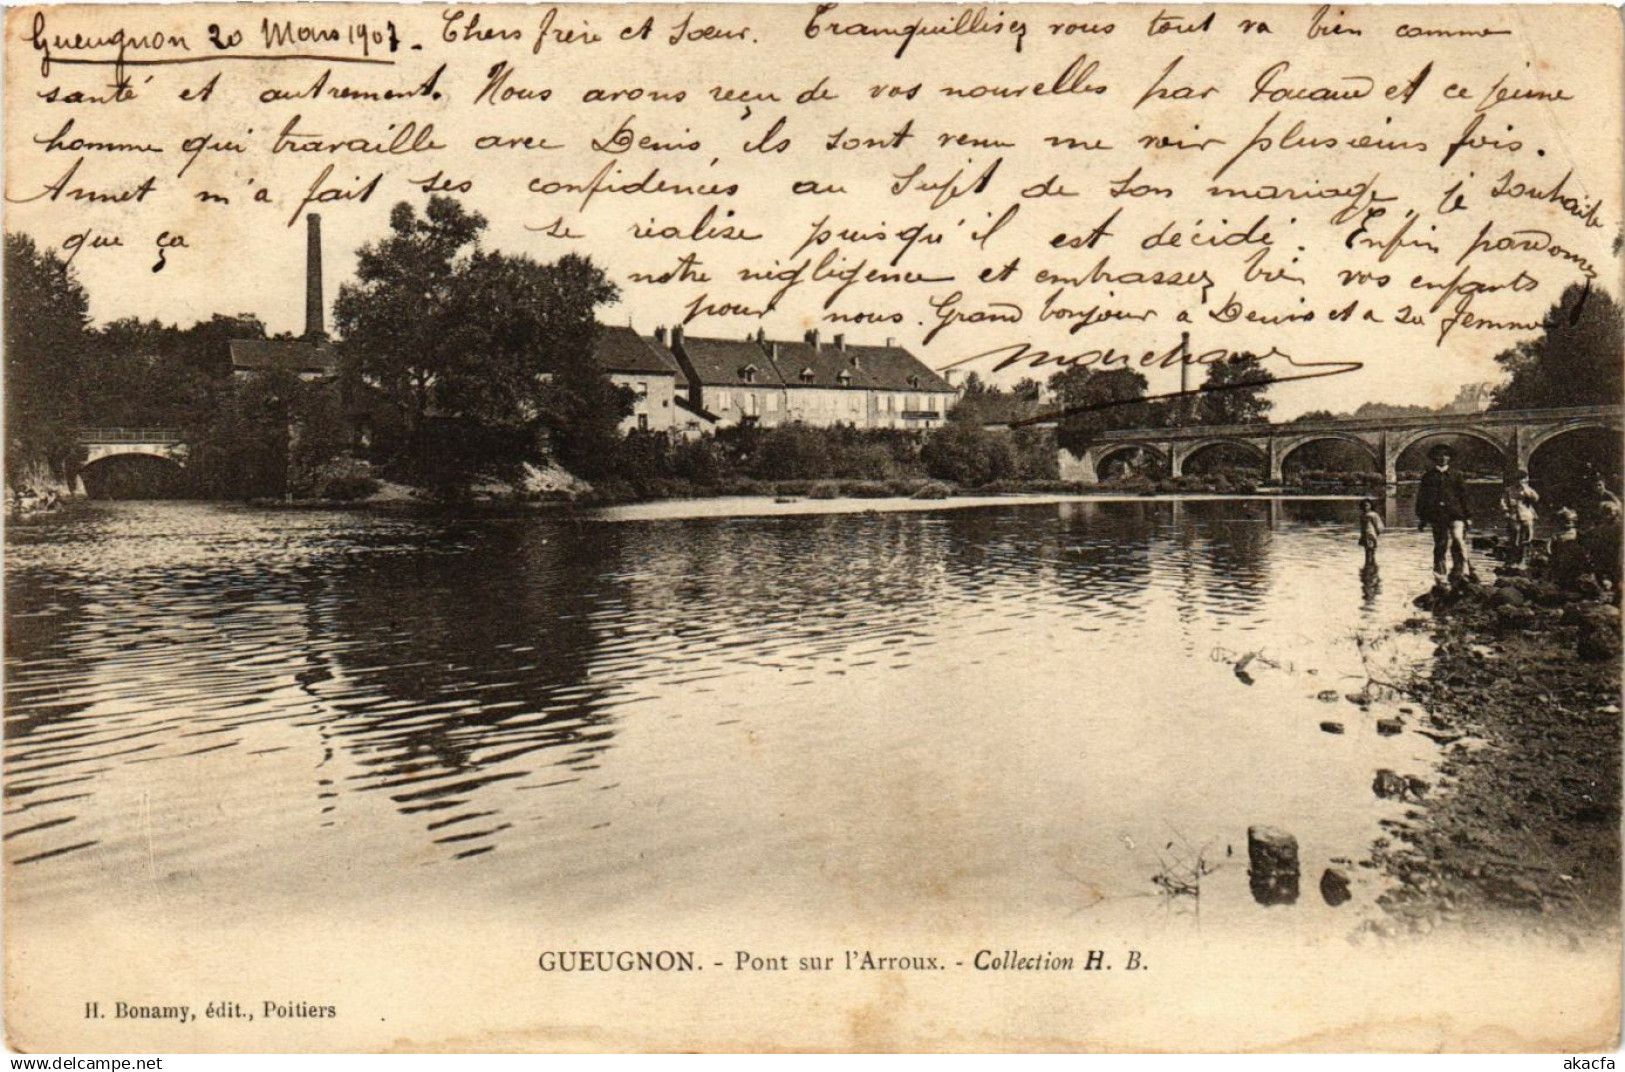 Gueugnon 20 Mars 1907. Chers frère et soeur. Tranquillisez vous tout va bien comme
santé et autrement. Nous avons reçu de vos nouvelles par et ce jeune
homme qui travaille avec Denis, ils sont venu me voir plusieurs fois.
Annet m'a fait ses confidences au sujet de son mariage, je souhaite
que ça se réalise puisqu'il est décidé. Enfin pardonnez
notre négligence et embrassez bien vos enfants
pour nous. Grand bonjour a Denis et a sa femme
GUEUGNON. - Pont sur l'Arroux. - Collection H. B.
H. Bonamy, édit., Poitiers
akacfa